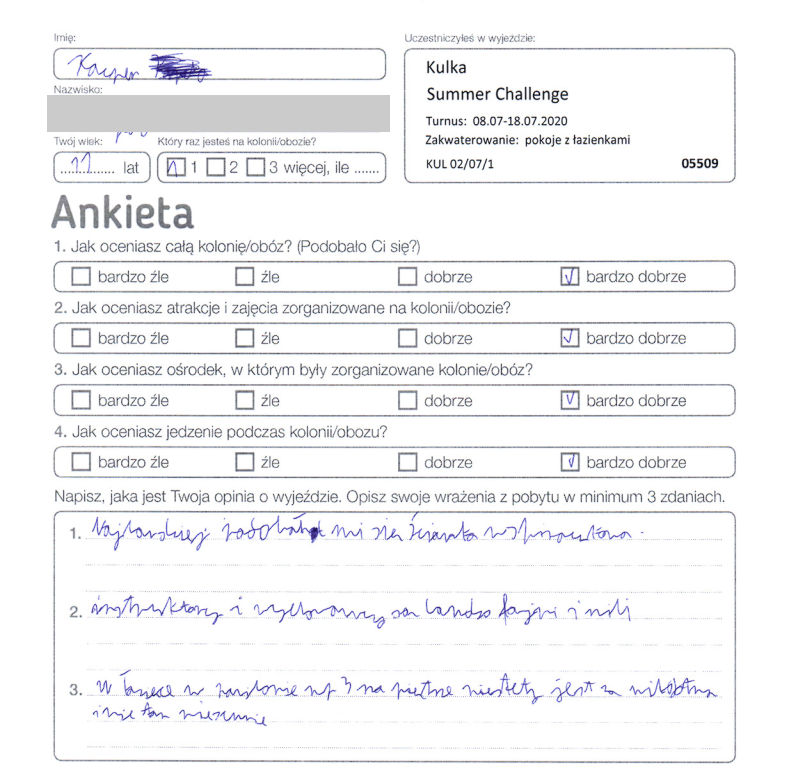 Imię:
Kacper
Nazwisko:
Twój wiek:
11 lat
Który raz jesteś na kolonii/obozie?
1 2 3 więcej, ile .......
Uczestniczyłeś w wyjeździe:
Kulka
Summer Challenge
Turnus: 08.07-18.07.2020
Zakwaterowanie: pokoje z łazienkami
KUL 02/07/1 05509
Ankieta
1. Jak oceniasz całą kolonię/obóz? (Podobało Ci się?)
bardzo źle źle dobrze bardzo dobrze
2. Jak oceniasz atrakcje i zajęcia zorganizowane na kolonii/obozie?
bardzo źle źle dobrze bardzo dobrze
3. Jak oceniasz ośrodek, w którym były zorganizowane kolonie/obóz?
bardzo źle źle dobrze bardzo dobrze
4. Jak oceniasz jedzenie podczas kolonii/obozu?
bardzo źle źle dobrze bardzo dobrze
Napisz, jaka jest Twoja opinia o wyjeździe. Opisz swoje wrażenia z pobytu w minimum 3 zdaniach.
1. Najbardziej podobała mi sie ścianka wspinaczkowa.
2. instruktorzy i wychowawcy są bardzo fajni i mili
3. W łazece w nr 3 na piętrze niestety jest za
i nie tam